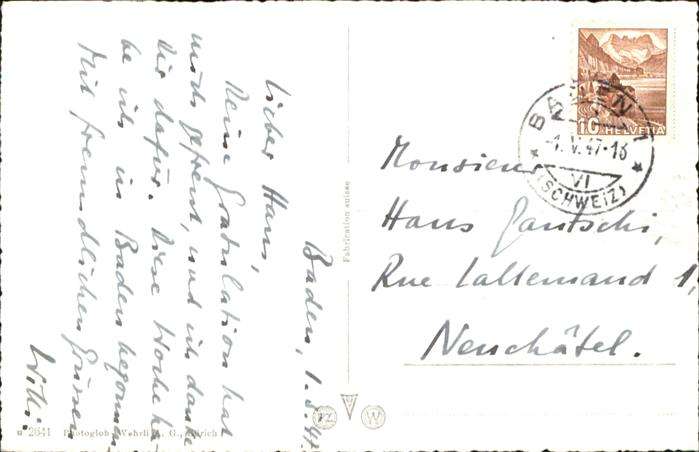 Baden, 1.5.47
Lieber Hans,
Deine Gratulation hat
mich gefreut, und ich danke
dir dafür. Diese Woche ha-
be ich in Baden begonnen
Mit freundlichen Grüssen
Willi.
R 2641 Photoglob-Wehrli A. G., Zürich
Fabrication suisse
PZ W
10 HELVETIA
BADEN 1
-1.V.47-18
VI
(SCHWEIZ)
Monsieur
Hans Jantschi,
Rue Lallemand 1,
Neuchâtel.